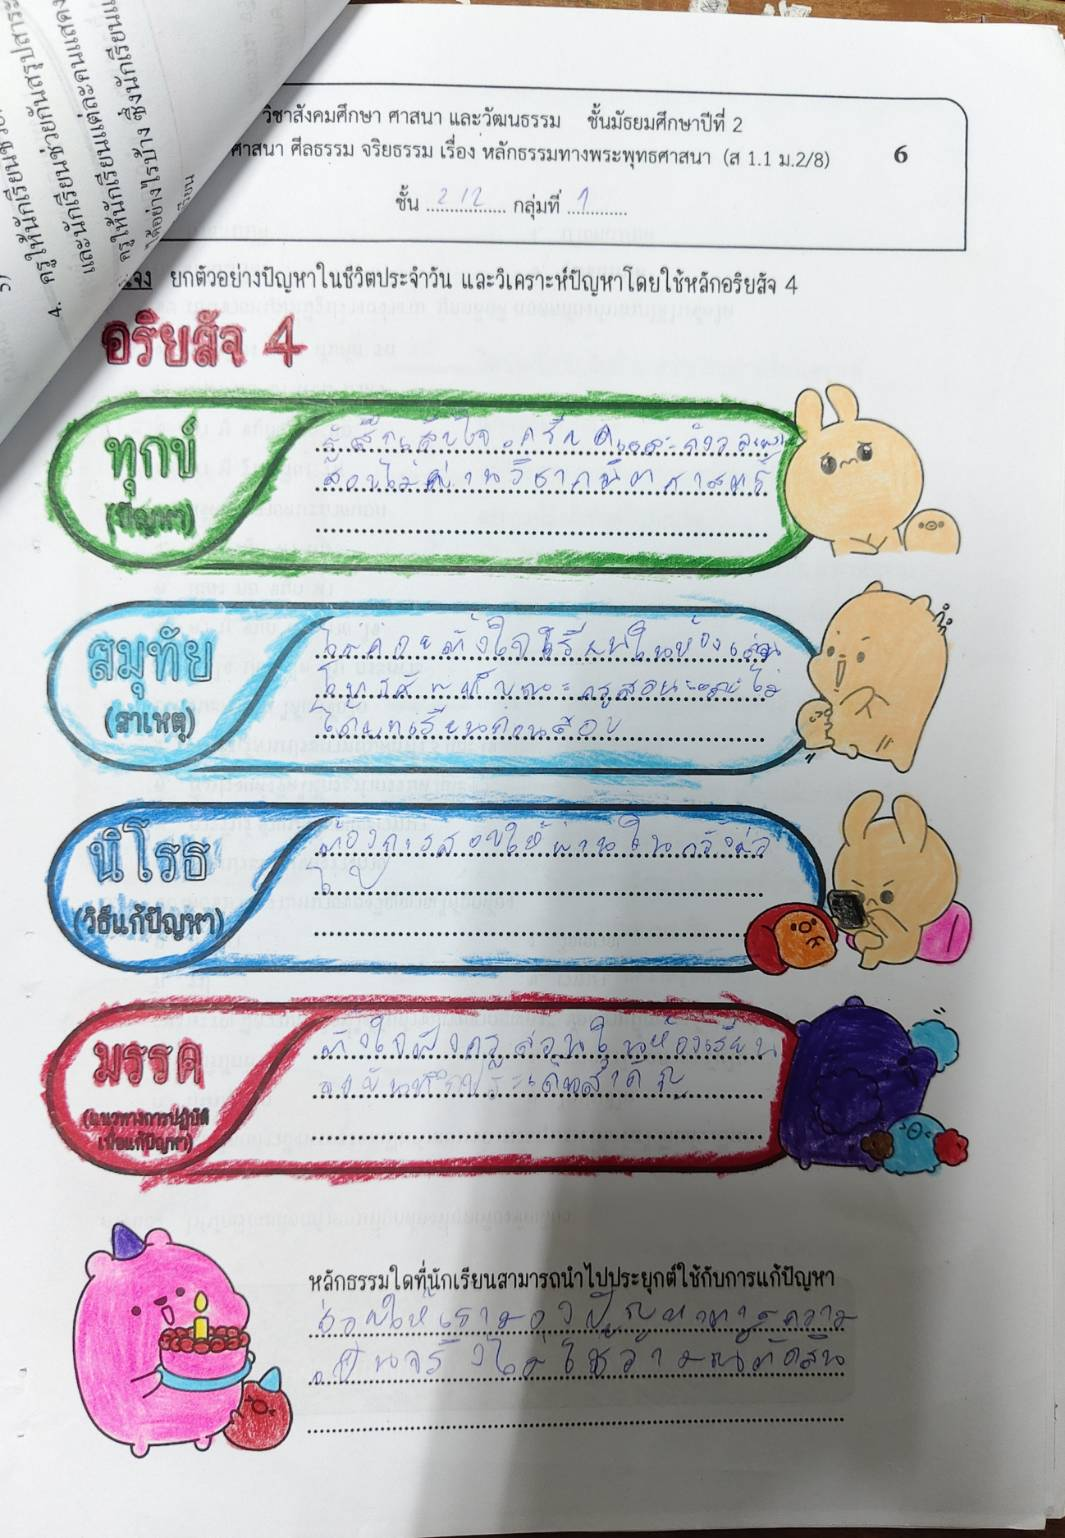 ครูให้นักเรียนช่วย
4. ครูให้นักเรียนช่วยกันสรุปสาระ
และนักเรียนแต่ละคนแสดง
ครูให้นักเรียน
ได้อย่างไรบ้าง ซึ่งนักเรียน
วิชาสังคมศึกษา ศาสนา และวัฒนธรรม ชั้นมัธยมศึกษาปีที่ 2
ศาสนา ศีลธรรม จริยธรรม เรื่อง หลักธรรมทางพระพุทธศาสนา (ส 1.1 ม.2/8)
6
ชั้น 2/2 กลุ่มที่ 1
จง ยกตัวอย่างปัญหาในชีวิตประจำวัน และวิเคราะห์ปัญหาโดยใช้หลักอริยสัจ 4
อริยสัจ 4
ทุกข์
(ปัญหา)
รู้สึกเสียใจ เครียด และกังวล
สอบไม่ผ่านวิชาคณิตศาสตร์
สมุทัย
(สาเหตุ)
ไม่ค่อยตั้งใจเรียนในห้อง เล่น
โทรศัพท์ขณะครูสอน และไม่
ได้บทเรียนก่อนสอบ
นิโรธ
(วิธีแก้ปัญหา)
ต้องการสอบให้ผ่านในครั้งต่อ
ไป
มรรค
(แนวทางการปฏิบัติ
เพื่อแก้ปัญหา)
ตั้งใจฟังครูสอนในห้องเรียน
จดบันทึกประเด็นสำคัญ
หลักธรรมใดที่นักเรียนสามารถนำไปประยุกต์ใช้กับการแก้ปัญหา
ช่วยให้เรามองปัญหาตามความ
เป็นจริงไม่ใช้อารมณ์ตัดสิน